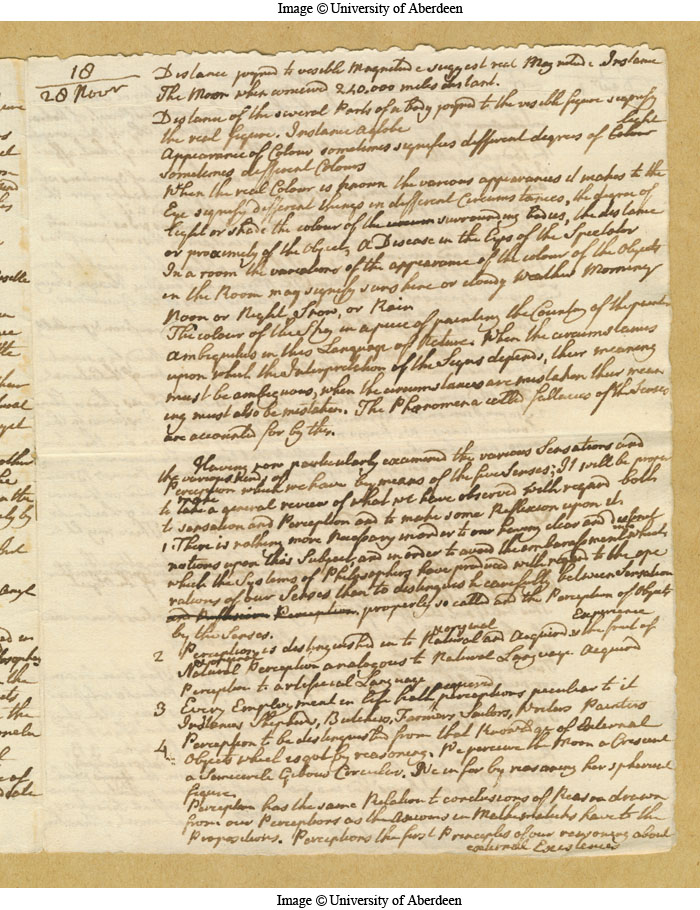 Image © University of Aberdeen
18
28 Novr
Distance joyned to visible Magnitude suggest real Magnitude Instance
The Moon when conceived 240,000 miles distant.
Distance of the several Parts of a body joyned to the visible figure signify
the real figure. Instance a Globe
Appearance of Colour sometimes signifies different degrees of light Colour
sometimes different Colours
When the real Colour is known the various appearances it makes to the
Eye signify different things in different Circumstances, the degree of
light or shade the colour of the surrounding bodies, the distance
or proximity of the Object, A Disease in the Eyes of the Spectator
In a room the variations of the appearance of the colour of the Objects
in the Room may signify sunshine or cloudy Weather Morning
Noon or Night, Snow, or Rain
The colour of the Sky in a piece of painting the Country of the painter
Ambiguities in this Language of Nature. When the circumstances
upon which the Interpretation of the Signs depends, their meaning
must be ambiguous, when the circumstances are mistaken their mean
ing must also be mistaken. The Phænomena called fallacies of the Senses
are accounted for by this.
Having now particularly examined the various Sensations and
the various kinds of
Perception which we have by means of the five Senses; It will be proper
to take a general review of what we have observed with regard both
to sensation and Perception and to make some Reflexion upon it
1 There is nothing more Necessary in order to our having clear and distinct
notions upon this Subject, and in order to avoid the embarassment into
which the Systems of Philosophers have produced with regard to the ope
rations of our Senses than to distinguish carefully between Sensation
and Perception properly so called and the Perception of Objects
by the Senses.
2 Perception is distinguished in to original Natural and Acquired the fruit of Experience
Natural Perception analogous to Natural Language Acquired
Perception to artificial Language
3 Every Employment in life hath acquired perceptions peculiar to it
Instances Shepherds, Butchers, Farmers Sailors, Painters
4 Perception to be distinguished from that Knowledge of External
Objects which is got by reasoning. We perceive the Moon a Crescent
a Semicircle Gibous Circular. We infer by reasoning her spherical
figure.
Perception has the same Relation to conclusions of Reason drawn
from our Perceptions as the Axioms in Mathematicks have to the
Propositions. Perceptions the first Principles of our reasoning about
external Existences
Image © University of Aberdeen